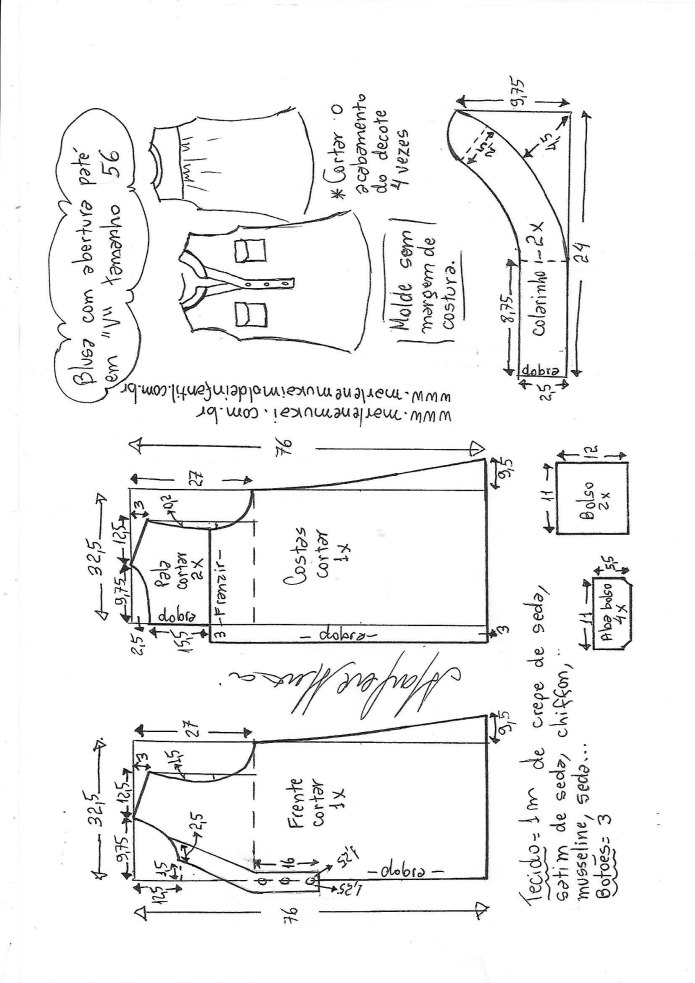 Blusa com abertura patê
em "V" tamanho 56
* Cortar o
acabamento
do decote
4 vezes
Molde sem
margem de
costura.
www.marlenemukai.com.br
www.marlenemukaimoldeinfantil.com.br
9,75
2,5
4,5
24
8,75
colarinho - 2x
dobra
2,5
76
27
9,5
32,5
12,5
9,75
3
0,2
Pala
cortar
2x
dobra
Franzir
Costas
cortar
1x
dobra
2,5
15,5
3
3
12
11
Bolso
2x
5,5
11
Aba bolso
4x
Marlene Mukai
27
9,5
32,5
12,5
9,75
3
1,5
2,5
Frente
cortar
1x
16
1,25
1,25
dobra
12,5
1,5
76
Tecido = 1m de crepe de seda,
satim de seda, chiffon,
musseline, seda...
Botões = 3